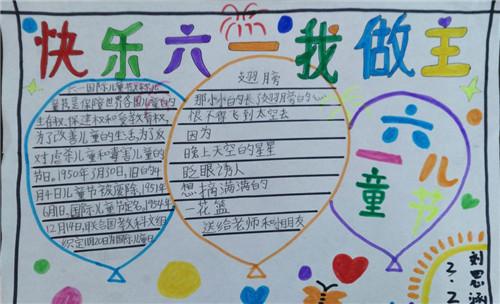 快乐六一我做主
六一国际儿童节
童节是保障世界各国儿童的
生存权、保健权和受教育权,
为了改善儿童的生活,为了反
对虐杀儿童和毒害儿童的
节日。1950年3月30日,旧的4
月4日儿童节被废除,1951年
6月1日国际儿童节定名,1954年
12月14日,联合国教科文组
织定11月20日为国际儿童日
翅膀
那小小的长了翅膀的心
恨不得飞到太空去
因为
晚上天空的星星
眨眼诱人
想摘满满的
一花篮
送给老师和小朋友
六一
儿童节
刘思涵